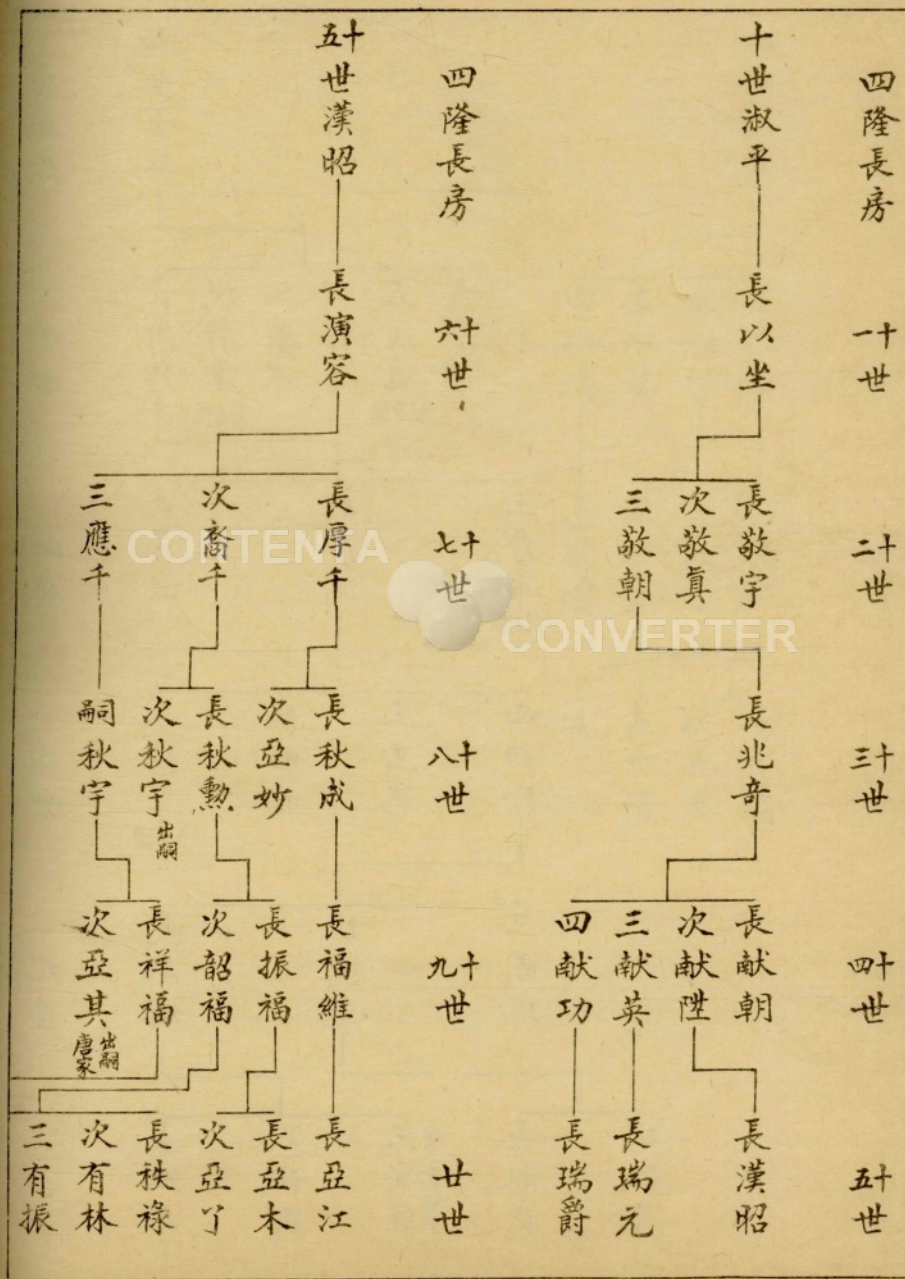 四隆長房
十一世
十二世
十三世
十四世
十五世
十世淑平
長以坐
長敬宇
次敬眞
三敬朝
長兆奇
長献朝
次献陞
三献英
四献功
長漢昭
長瑞元
長瑞爵
四隆長房
十六世
十七世
十八世
十九世
廿世
十五世漢昭
長演容
長厚千
次喬千
三應千
長秋成
次亞妙
長秋勲
次秋宇出嗣
嗣秋宇
長福維
長振福
次韶福
長祥福
次亞其出嗣唐家
長亞江
長亞木
次亞丫
長秩祿
次有林
三有振
CONTENTA
CONVERTER